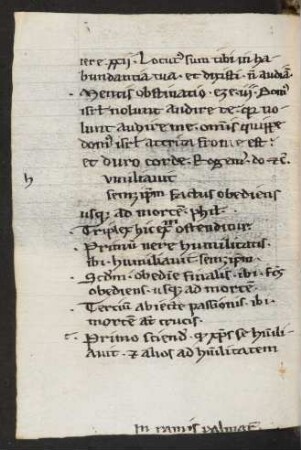 iere. xxij. Locut9 sum tibi in ha
bundantia tua. et dixisti. n̄ audiā.
Mentis obstinatio. eze. iij. Dom9
isrl nolunt audire te. q̄ no
lunt audire me. om̄is quippe
dom9 isrl attrita fronte est.
et duro corde. Rogem9. do. ⁊c̄.
h
Umiliauit
semꝫ ip̄m factus obediens
usqꝫ ad mortē. phil.
Triplex hic ostenditur.
Primū uere humilitatis.
ibi. humiliauit semꝫ ip̄m.
Scdm. obedie finalis. ibi. fc̄s
obediens. usqꝫ ad mortē.
Tertiū abiecte passionis. ibi.
mortē aūt crucis.
Primo sciend. qꝫ xp̄s se hūili
auit. ⁊ alios ad hūilitatem
In ramis palmaꝝ